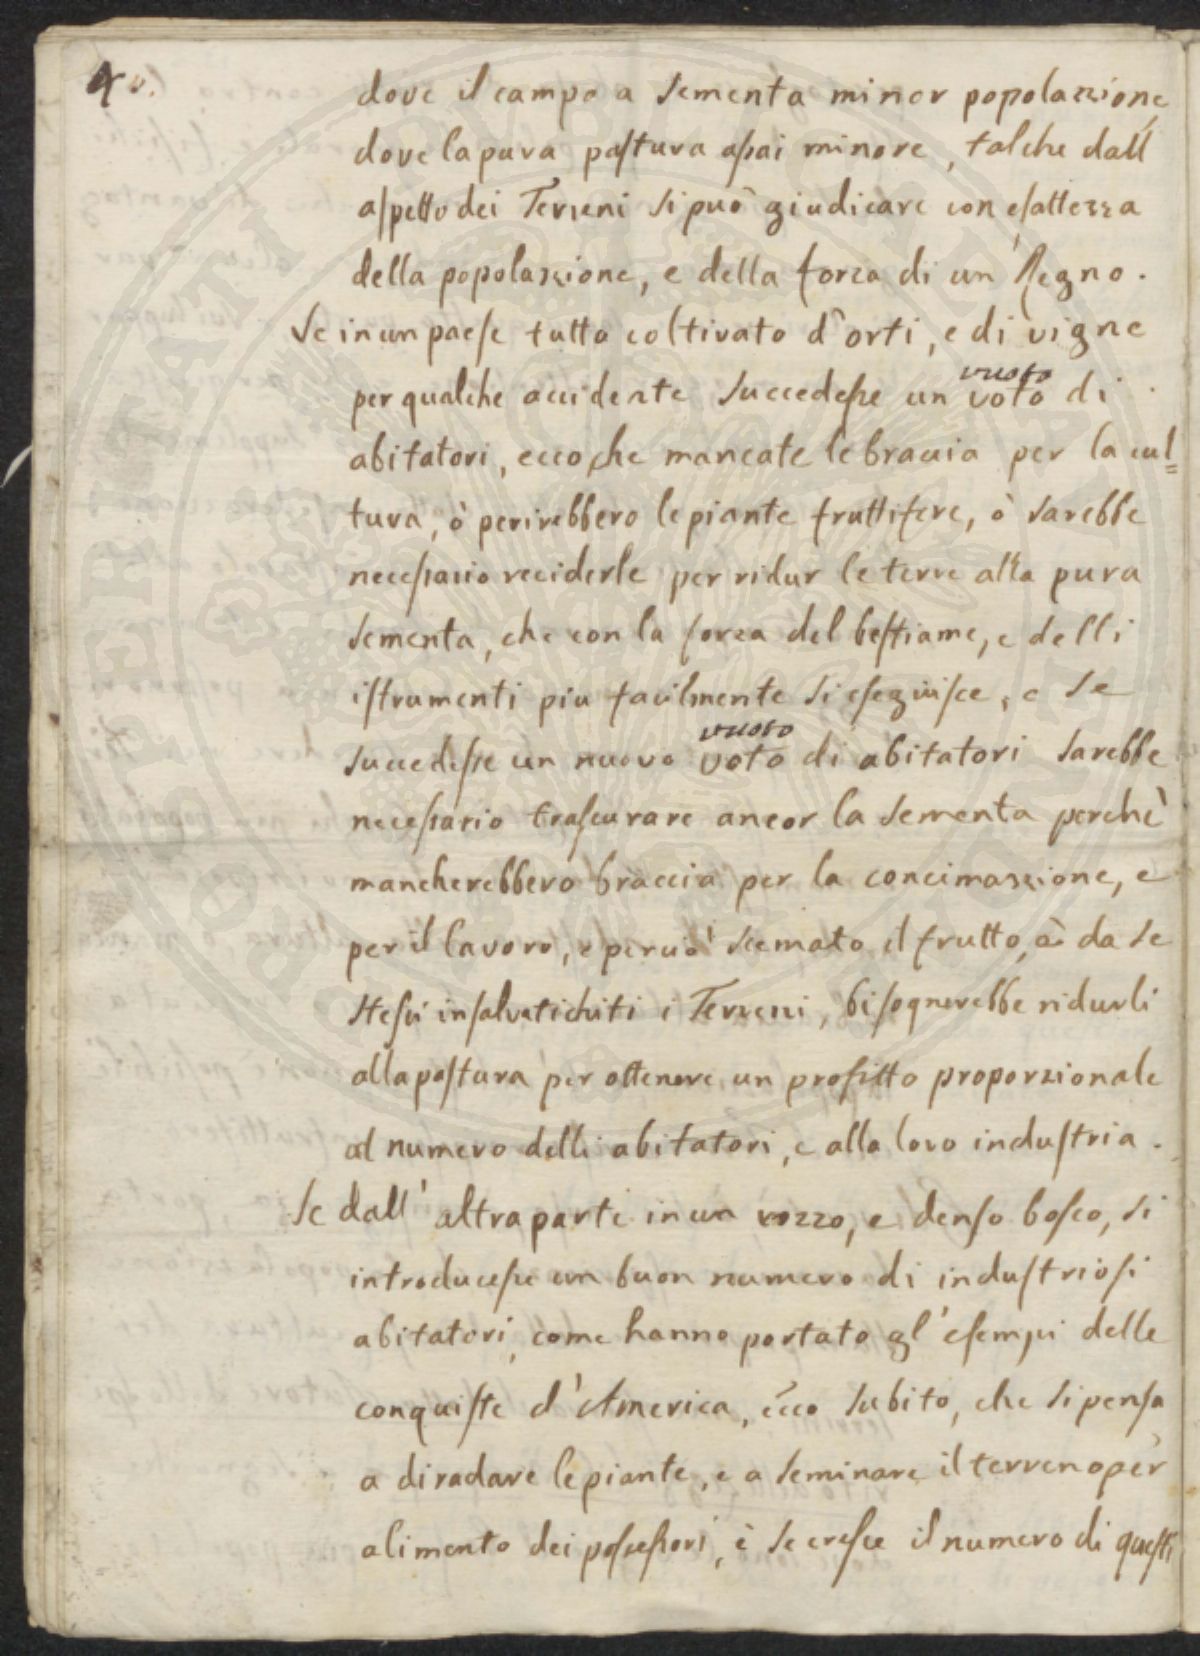 4v.
dove il campo a sementa minor popolazzione,
dove la pura pastura assai minore, talche dall
aspetto dei Terreni si può giudicare con esattezza
della popolazzione, e della forza di un Regno.
Se in un paese tutto coltivato d'orti, e di vigne
vuoto
per qualche accidente succedesse un voto di
abitatori, ecco che mancate le braccia per la cul=
tura, ò perirebbero le piante fruttifere, ò sarebbe
necessario reciderle per ridur le terre alla pura
sementa, che con la forza del bestiame, e delli
istrumenti piu facilmente si eseguisce, e se
vuoto
succedesse un nuovo voto di abitatori sarebbe
necessario trascurare ancor la sementa perchè
mancherebbero braccia per la concimazzione, e
per il lavoro, e perciò scemato il frutto, ò da se
stessi insalvatichiti i Terreni, bisognerebbe ridurli
alla pastura per ottenere un profitto proporzionale
al numero delli abitatori, e alla loro industria.
Se dall'altra parte in un rozzo, e denso bosco, si
introducesse un buon numero di industriosi
abitatori, come hanno portato gl'esempi delle
conquiste d'America, ecco subito, che si pensa
a diradare le piante, e a seminare il terreno per
alimento dei possessori, è se cresce il numero di questi
PROSPERITATI PUBLICAE AUGENDAE